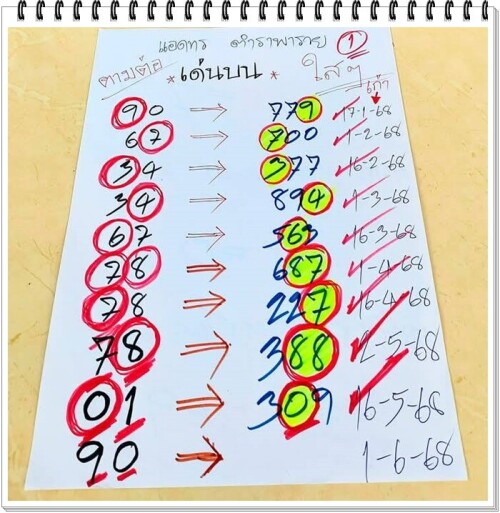 แอดทร ตำราพารวย 1
ตามต่อ *เด่นบน* ใสๆ
เก่า
90 → 779 17-1-68
67 → 700 1-2-68
34 → 377 16-2-68
34 → 894 1-3-68
67 → 563 16-3-68
78 → 687 1-4-68
78 → 227 16-4-68
78 → 388 2-5-68
01 → 309 16-5-68
90 → 1-6-68